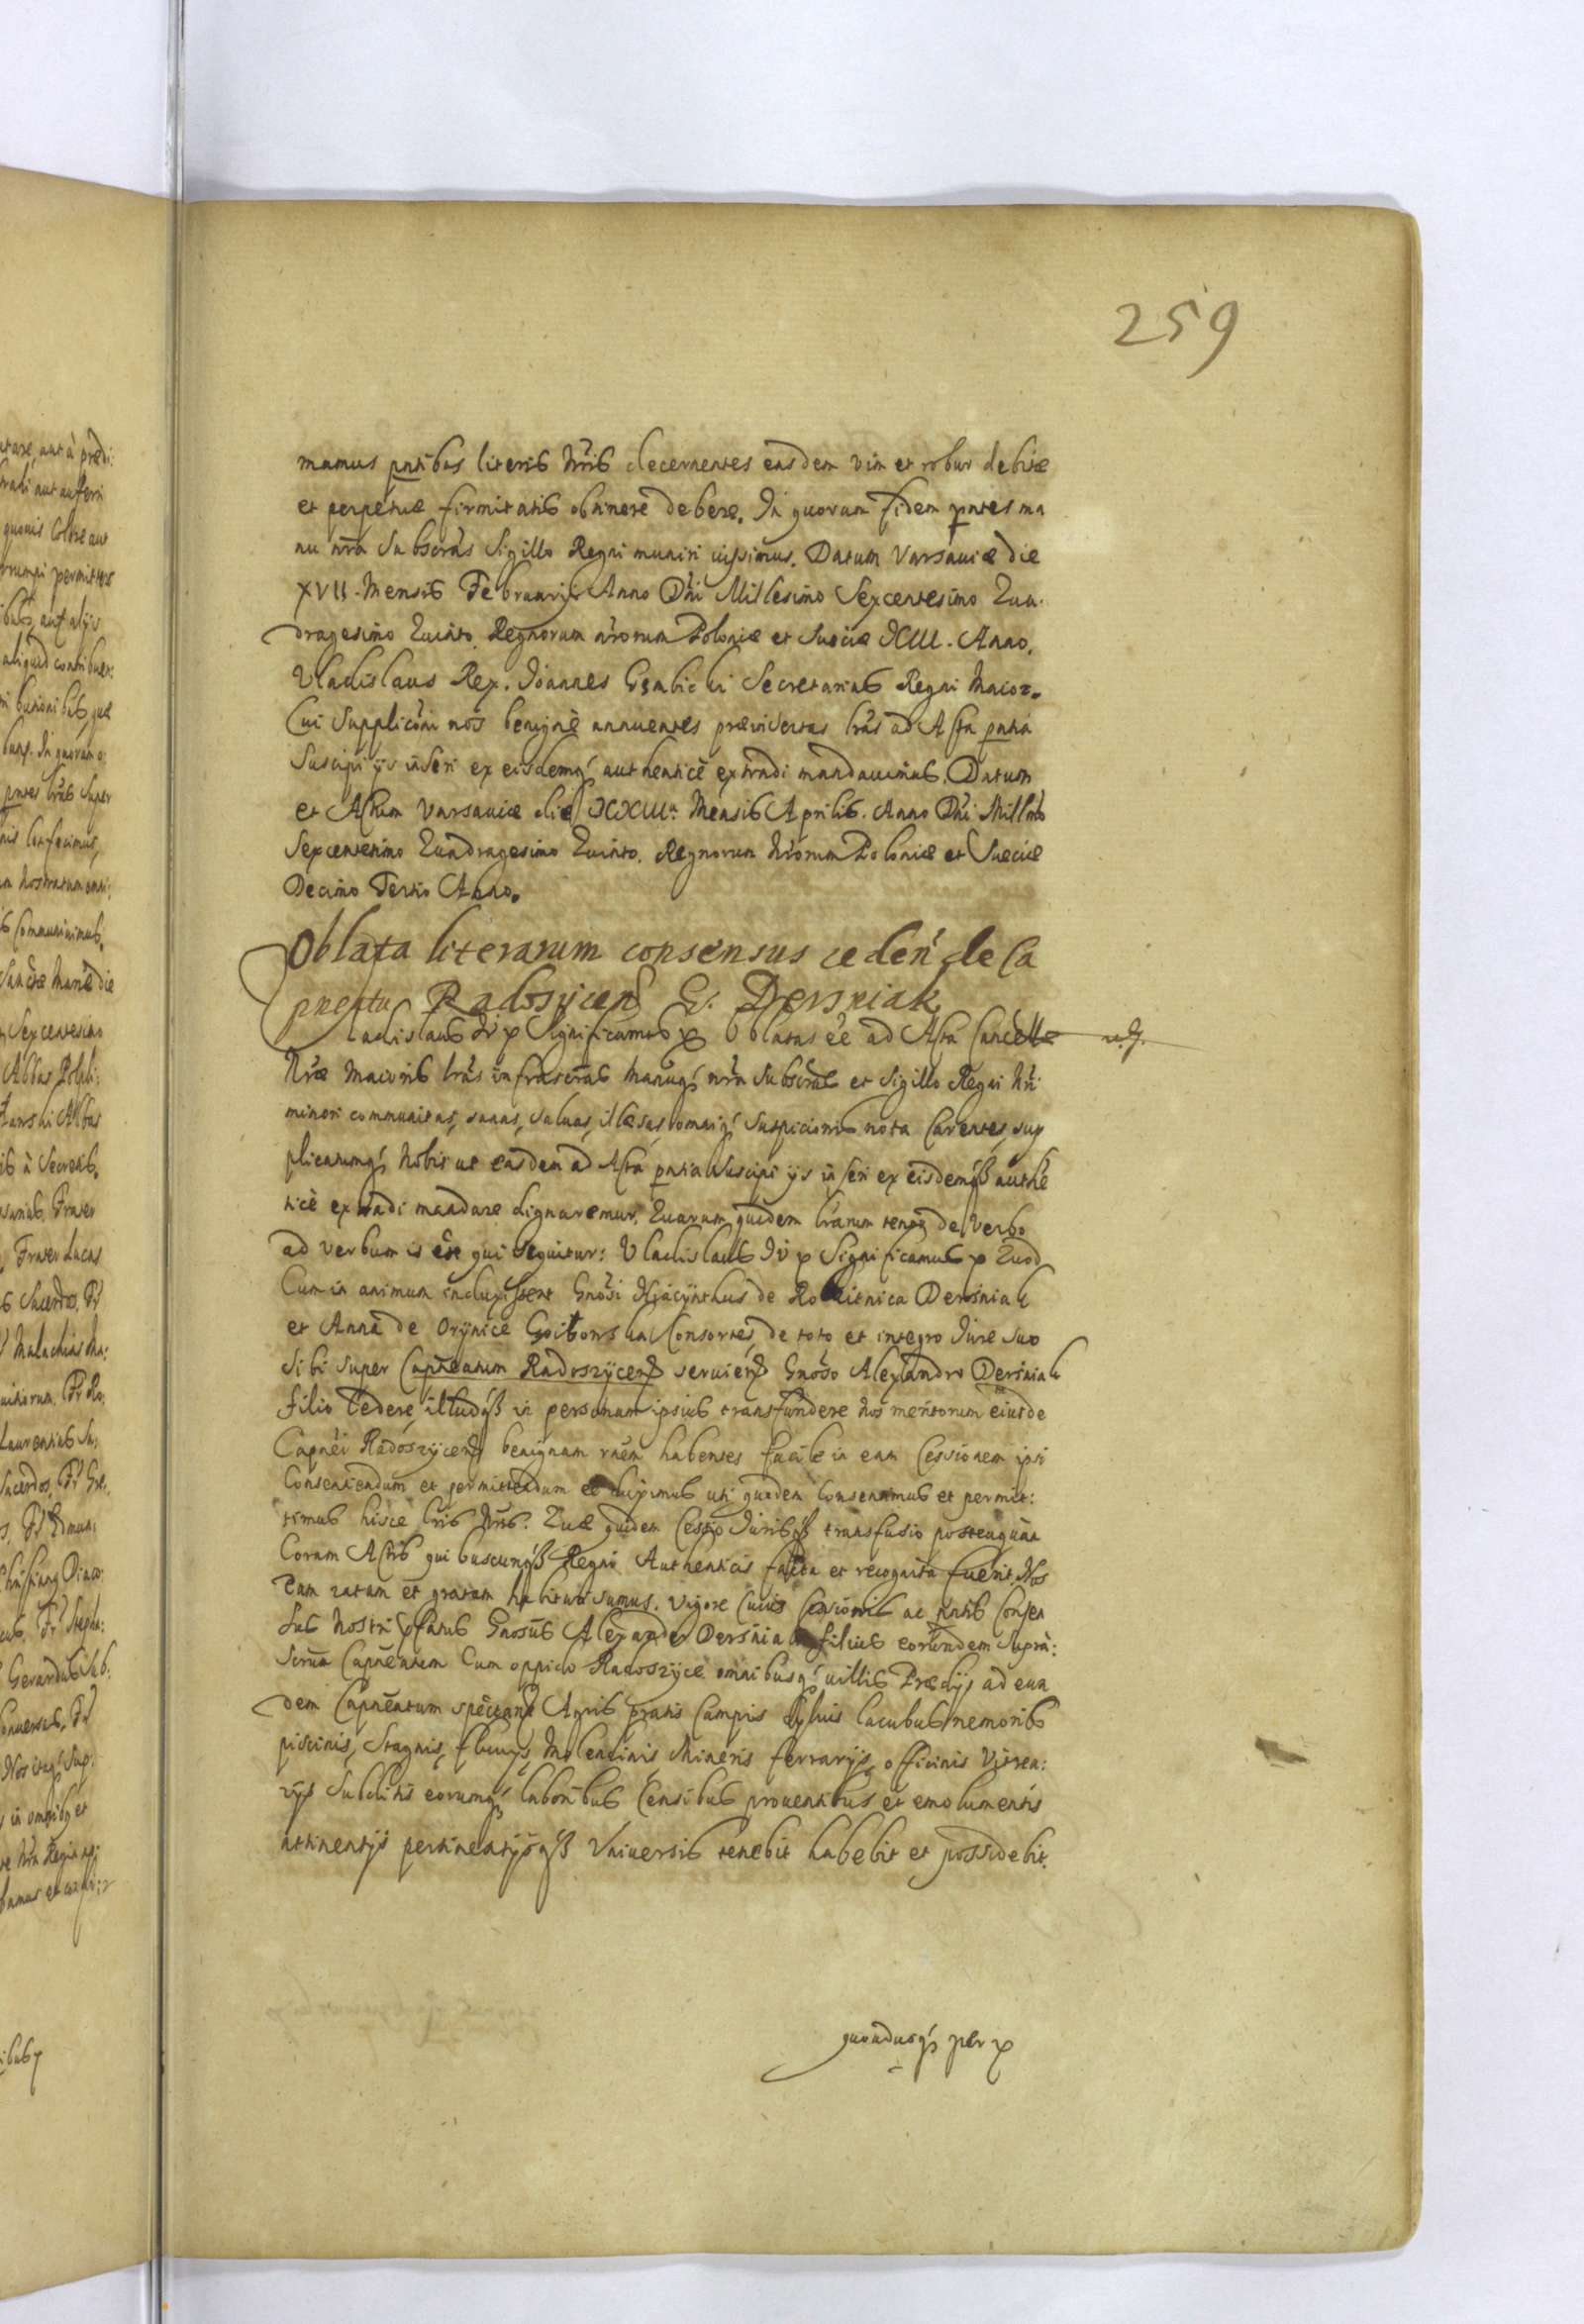 259
mamus pntibus literis Nris decernentes easdem vim et robur debitæ
et perpetuæ firmitatis obtinere debere. In quorum fidem pntes ma
nu nra Subscras Sigillo Regni muniri iussimus. Datum Varsaviæ die
XVII. Mensis Februarij Anno Dni Millesimo Sexcentesimo Qua.
dragesimo Quinto. Regnorum nrorum Poloniæ et Sueciæ XIII. Anno.
Vladislaus Rex. Joannes Gembicki Secretarius Regni Maior.
Cui Supplicôni nos benignè annuentes præinsertas lras ad Acta pntia
Suscipi ijs inseri ex eisdemq; authenticè extradi mandavimus. Datum
et Actum Varsaviæ die XXIIIa Mensis Aprilis. Anno Dni Millmo
Sexcentesimo Quadragesimo Quinto. Regnorum Nrorum Poloniæ et Sueciæ
Decimo Tertio Anno.
Oblata literarum consensus ceden de Ca
pneatu Radosycen G. Dersniak
ladislaus IV p Significamus p Oblatas eê ad Acta Cancellæ
Nræ Maioris lras infrascras Manuq; nra Subscras et Sigillo Regni Nri
minori communitas, sanas, salvas, illæsas, omniq; Suspicionis nota Carentes, sup
plicatumq; Nobis ut easdem ad Acta pntia Suscipi ijs inseri ex eisdemq; authe
ticè extradi mandare dignaremur. Quarum quidem lrarum tenor de Verbo
ad verbum is est qui sequitur: Vladislaus IV p Significamus p Quod
Cum in animum induxissent Gnosi Hyacijnthus de Rokitnica Dersniak
et Anna de Orijnice Consortes, de toto et integro Jure suo
Sibi super Capneatum Radoszijcen servien Gnoso Alexandro Dersniak
filio Cedere, illudq; in personam ipsius transfundere Nos meritorum eiusde
Capnei Radoszijcen benignam rnem habentes facile in eam Cessionem ipsi
Consentiendum et permittendum duximus uti quidem Consentimus et permit:
timus hisce lris Nris. Quæ quidem Cessio Jurisq; transfusio posteaquam
Coram Actis quibuscunq; Regni Authenticis facta et recognita fuerit. Nos
Eam ratam et gratam habituri sumus. Vigore Cuius Cessionis ac pntis Consen
sus Nostri pfatus Gnosus Alexander Dersniak filius eorundem supra:
scrum Capneatum Cum oppido Radoszijce omnibusq; villis Prædijs ad eun
dem Capneatum spectan Agris pratis Campis Sylvis lacubus nemoribo
piscinis, Stagnis, fluvijs Molendinis Mineris ferrarijs, officinis Vitrea:
rijs Subditis eorumq; laboribus Censibus proventibus et emolumentis
attinentijs pertinentijsq; Universis tenebit habebit et possidebit.
quoadusq; per p